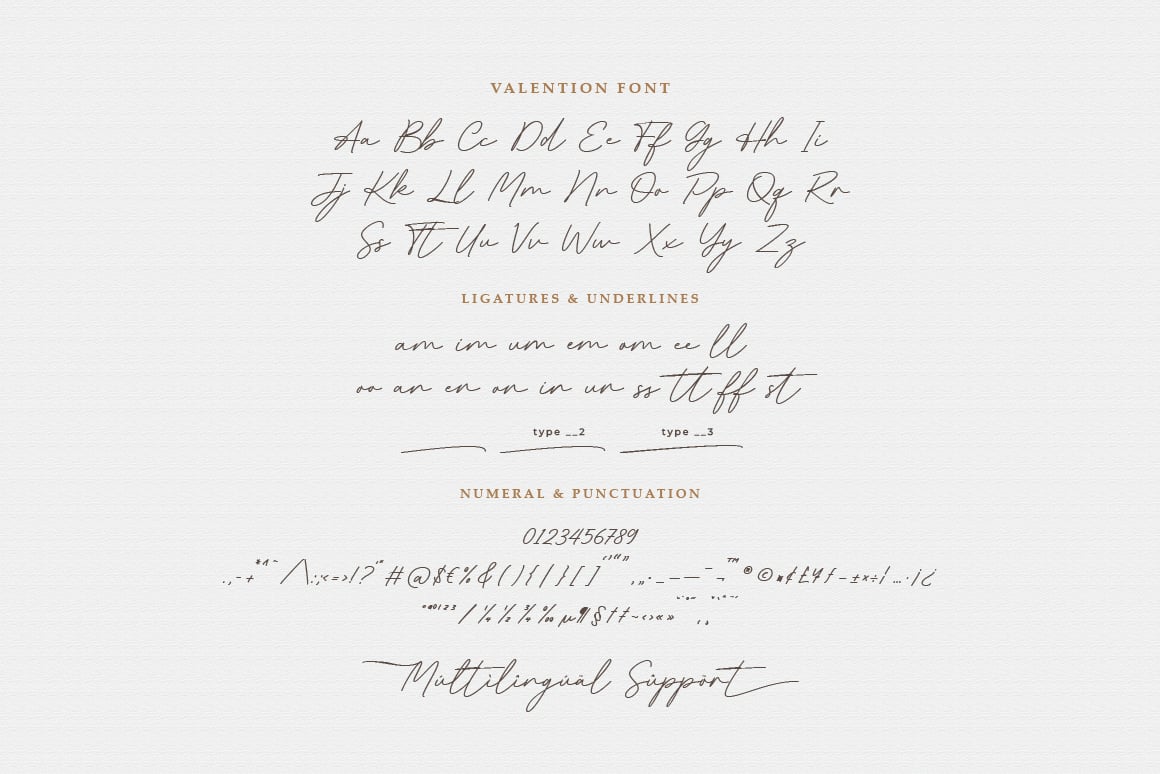 VALENTION FONT
Aa Bb Cc Dd Ee Ff Gg Hh Ii
Jj Kk Ll Mm Nn Oo Pp Qq Rr
Ss Tt Uu Vv Ww Xx Yy Zz
LIGATURES & UNDERLINES
am im um em om ee ll
oo an en on in un ss tt ff st
type __2 type __3
NUMERAL & PUNCTUATION
0123456789
.,-+*^~/\:;<=>!?'"#@$€%&(){|}[]‘’“”‚„·_–—¯¬™®©¤¢£¥ƒ-±×÷¦…·¡¿
ªº0123/¼½¾‰µ¶§†‡~‹›«»
Múltilingúál Süppört